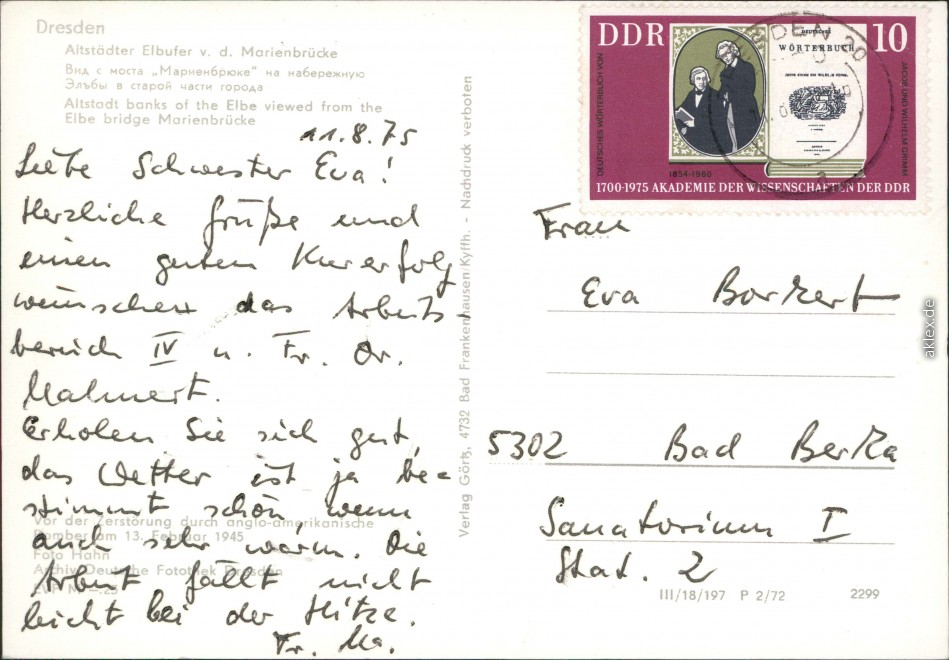 Dresden
Altstädter Elbufer v. d. Marienbrücke
Вид с моста „Мариенбрюке" на набережную
Эльбы в старой части города
Altstadt banks of the Elbe viewed from the
Elbe bridge Marienbrücke
11.8.75
Liebe Schwester Eva!
Herzliche Grüße und
einen guten Kurerfolg
wünschen das Arbeits-
bereich IV u. Fr. Dr.
Mahnert.
Erholen Sie sich gut,
das Wetter ist ja be-
stimmt schön wenn
auch sehr warm. Die
Arbeit fällt nicht
leicht bei der Hitze.
Fr. Ma.
Vor der Zerstörung durch anglo-amerikanische
Bomber am 13. Februar 1945
Foto Hahn
Archiv Deutsche Fotothek Dresden
Verlag Görtz, 4732 Bad Frankenhausen/Kyffh. - Nachdruck verboten
DDR
10
DEUTSCHES WÖRTERBUCH VON
JACOB UND WILHELM GRIMM
DEUTSCHES
WÖRTERBUCH
1854-1960
1700-1975 AKADEMIE DER WISSENSCHAFTEN DER DDR
Frau
Eva Borkert
5302 Bad Berka
Sanatorium I
Stat. 2
III/18/197 P 2/72 2299
aklex.de